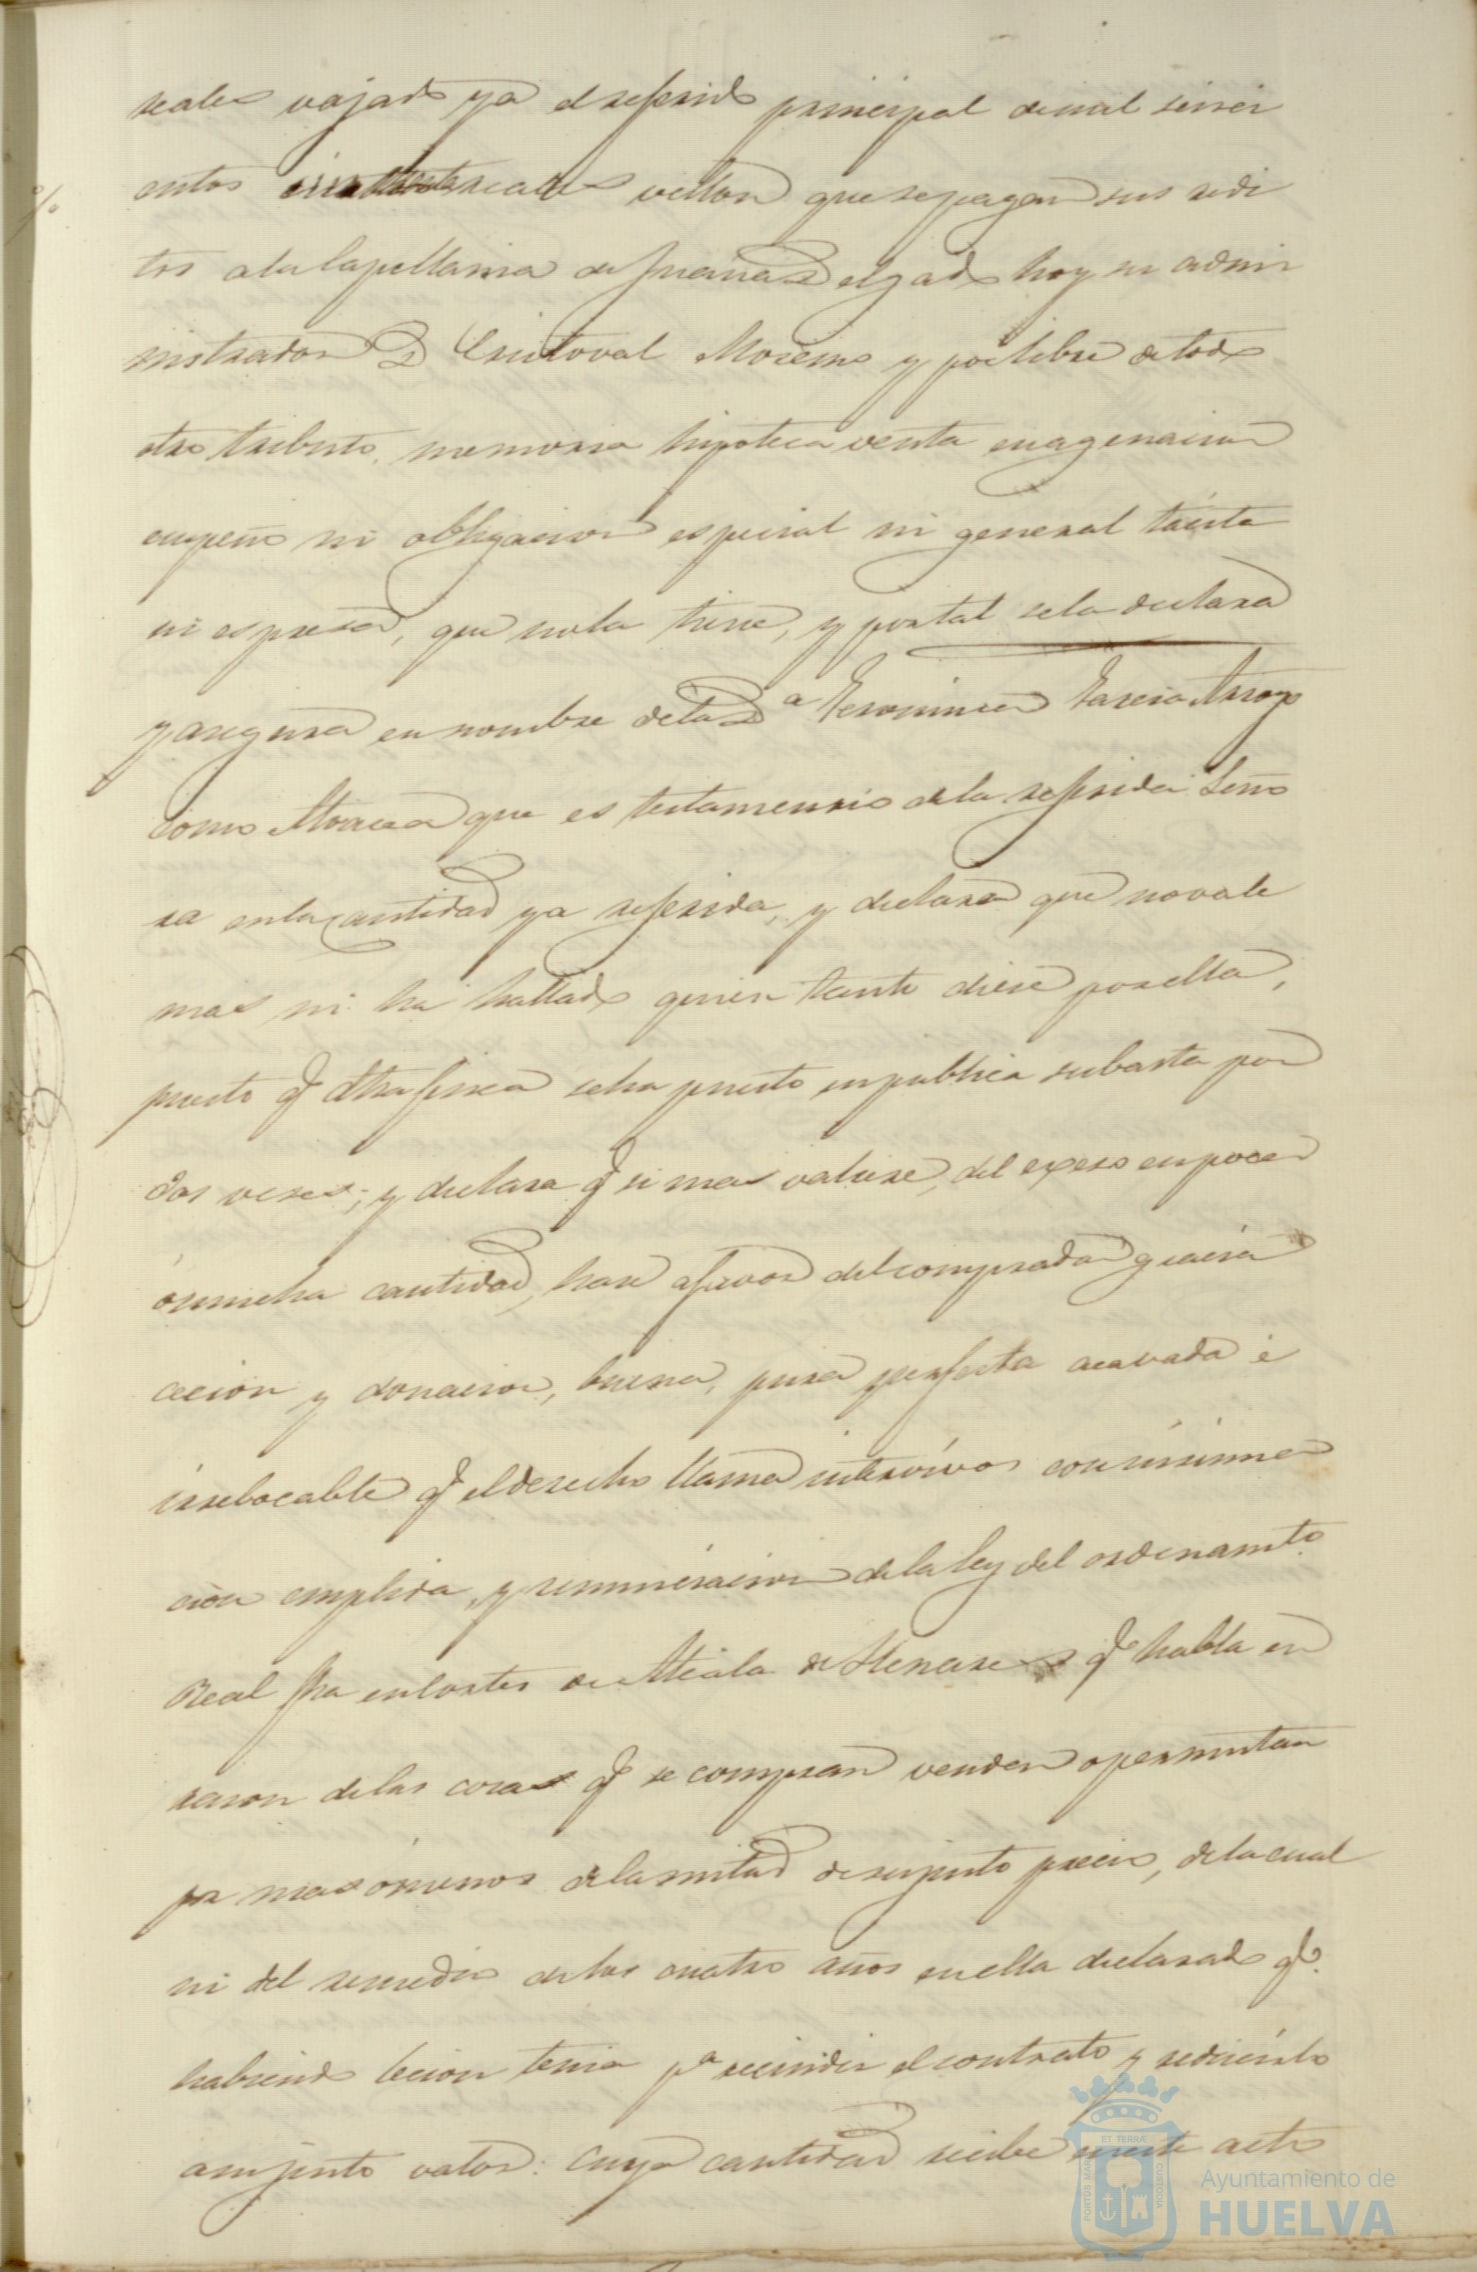 reales vajado ya el referido principal de mil seisci
entos cincuenta reales vellon que se pagan sus redi
tos a la Capellania de Juana Delgado hoy su admi
nistrador D Cristoval Moreno y por libre de todo
otro tributo, memoria hipoteca venta enagenacion
empeño ni obligacion especial ni general tácita
ni espresa, que no la tiene, y por tal se la declara
y asegura en nombre de la D.ª Geronima Garcia Arroyo
como Alvacea que es testamentario de la referida Seño
ra en la cantidad ya referida, y declara que no vale
mas ni ha hallado quien tanto diese por ella,
puesto q. dha finca se ha puesto en publica subasta por
dos veses; y declara q si mas valiese, del exeso en poca
ó mucha cantidad, hase a favor del comprador gracia
cecion y donacion, buena, pura perfecta acavada é
irrebocable q el derecho llama intervívos con insinua
cion cumplida, y renunciacion de la ley del ordenamto.
Real fha en Cortes de Alcala de Henares q habla en
rason de las cosas q se compran venden o permutan
por mas ó menos de la mitad de su justo precio, de la cual
ni del remedio de los cuatro años en ella declarado q.
habiendo lecion tenia pª recindir el contrato y reducirlo
a su justo valor: Cuya cantidad recibe en este acto
ET TERRÆ
PORTUS MARIS
CUSTODIA
Ayuntamiento de
HUELVA